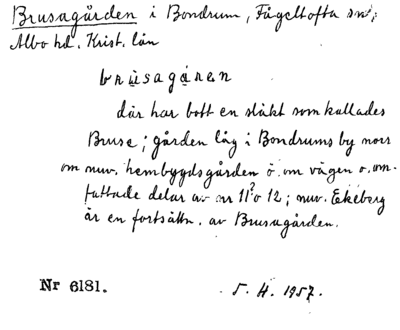 Brusagården i Bondrum, Fågeltofta sn,
Albo hd. Krist. län
brusagåren
där har bott en släkt som kallades
Bruse; gården låg i Bondrums by norr
om nuv. hembygdsgården ö. om vägen o. om-
fattade delar av nr 11? o 12; nuv. Ekeberg
är en fortsättn. av Brusagården.
Nr 6181.
5. 4. 1957.